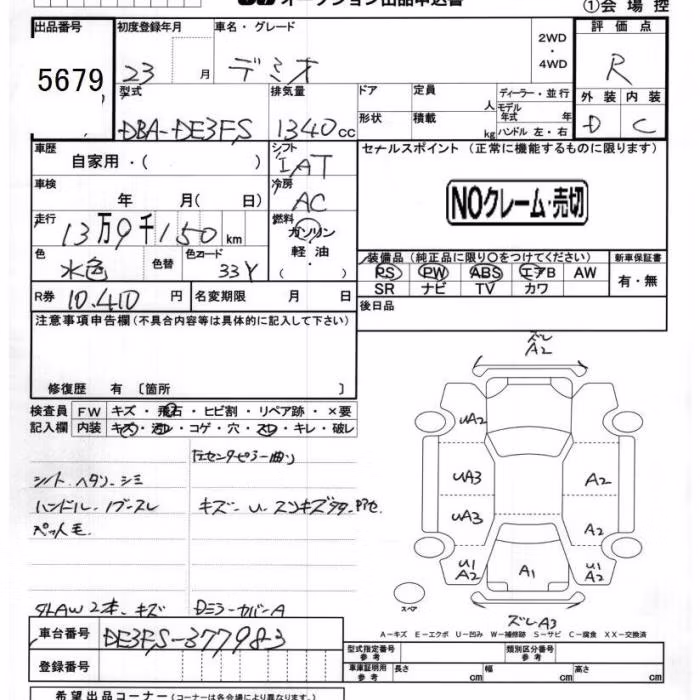 オークション出品申込書 ①会場控
出品番号 初度登録年月 車名・グレード 2WD・4WD 評価点
5679 23 月 デミオ R
型式 排気量 ドア 定員 人 ディーラー・並行 外装 内装
DBA-DE3FS 1340cc 形状 積載 kg モデル年式 年 ハンドル 左・右 D C
車歴 自家用・( ) シフト IAT セールスポイント (正常に機能するものに限ります)
車検 年 月( 日) 冷房 AC NOクレーム・売切
走行 13万9千150km 燃料 ガソリン・軽油・( )
色 水色 色替 色コード 33Y 装備品(純正品に限り○をつけてください) 新車保証書
PS PW ABS エアB AW 有・無
SR ナビ TV カワ
R券 10,410円 名変期限 月 日 後日品
注意事項申告欄(不具合内容等は具体的に記入して下さい)
修復歴 有〔箇所 〕
ズレ
A2
検査員 FW キズ・飛石・ヒビ割・リペア跡・×要
記入欄 内装 キズ・汚レ・コゲ・穴・スレ・キレ・破レ
uA2
左センタピラー曲り
シート ヘタリ・シミ
uA3 A2
ハンドル・ノブスレ キズ・U・スンキズ
uA3 A2
ペット毛
U1 A2 A1 U1 A2
スペア
タレAW2本・キズ ズレA3
A-キズ E-エクボ U-凹み W-補修跡 S-サビ C-腐食 XX-交換済
車台番号 DE3FS-377983
型式指定番号 参考 類別区分番号 参考
登録番号 車庫証明用 参考 長さ cm 幅 cm 高さ cm
希望出品コーナー(コーナーは各会場により異なります)